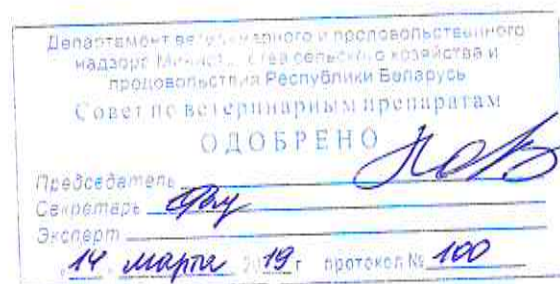 Департамент ветеринарного и продовольственного
надзора Министерства сельского хозяйства и
продовольствия Республики Беларусь
Совет по ветеринарным препаратам
ОДОБРЕНО
Председатель
Секретарь
Эксперт
"14" марта 2019 г. протокол № 100